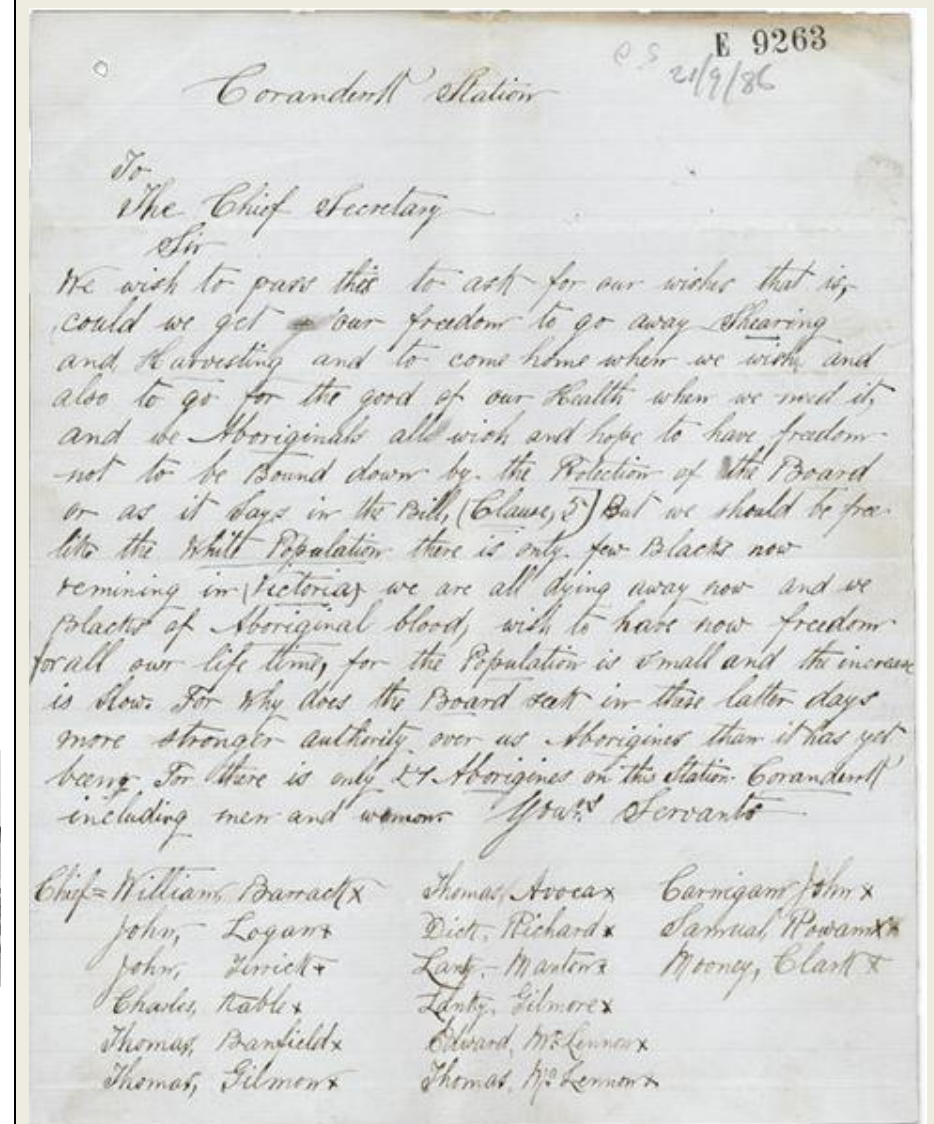 E 9263
21/9/86
Coranderrk Station
To
The Chief Secretary
Sir
We wish to pass this to ask for our wishes that is,
could we get our freedom to go away Shearing
and Harvesting and to come home when we wish and
also to go for the good of our Health when we need it,
and we Aboriginals all wish and hope to have freedom
not to be Bound down by the Protection of the Board
or as it Says in the Bill, (Clause, 5) But we should be free
like the White Population there is only few Blacks now
remining in (Victoria) we are all dying away now and we
Blacks of Aboriginal blood, wish to have now freedom
for all our life time, for the Population is small and the increase
is Slow. For Why does the Board seek in these latter days
more stronger authority over us Aborigines than it has yet
being For there is only Aborigines on this Station Coranderrk
including men and women. Servants
Chief= William, Barrack x
John, Logan x
John, Terrick x
Charles, x
Thomas, Banfield x
Thomas, Gilmore x
Thomas, Avoca x
Dick, Richard x
Lanky, Manton x
Lanky, Gilmore x
Edward, McLennon x
Thomas, McLennon x
Carnigam John x
Samual, Rowan x
Mooney, Clark x